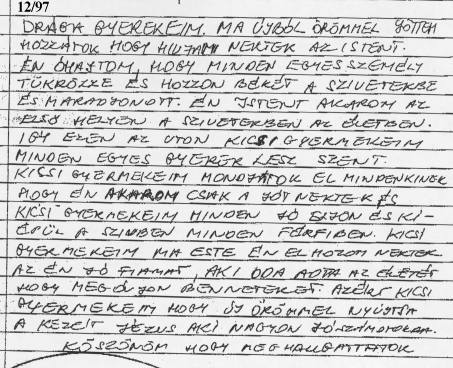 12/97
DRÁGA GYEREKEIM. MA ÚJBÓL ÖRÖMMEL JÖTTEM
HOZZÁTOK HOGY NEKTEK AZ ISTENT.
ÉN ÓHAJTOM, HOGY MINDEN EGYES SZEMÉLY
TÜKRÖZZE ÉS HOZZON BÉKÉT A SZIVETEKBE
ÉS MARADJON OTT. ÉN ISTENT AKAROM AZ
ELSŐ HELYEN A SZIVETEKBEN AZ ÉLETBEN.
IGY EZEN AZ UTON KICSI GYERMEKEIM
MINDEN EGYES GYEREK LESZ SZENT.
KISSI GYERMEKEIM MONDJÁTOK EL MINDENKINEK
HOGY ÉN AKAROM CSAK A JÓT NEKTEK ÉS
KICSI GYERMEKEIM MINDEN JÓ ÉS KI-
ÉPÜL A SZIVBEN MINDEN FÉRFIBEN. KICSI
GYERMEKEIM MA ESTE ÉN ELHOZOM NEKTEK
AZ ÉN JÓ FIAMAT, AKI ODA ADTA AZ ÉLETÉT
HOGY MEGÓVJON BENNETEKET. AZÉRT KICSI
GYERMEKEIM HOGY ÚJ ÖRÖMMEL NYÚJTJA
A KEZEIT JÉZUS AKI NAGYON
KÖSZÖNÖM HOGY MEGHALLGATTATOK